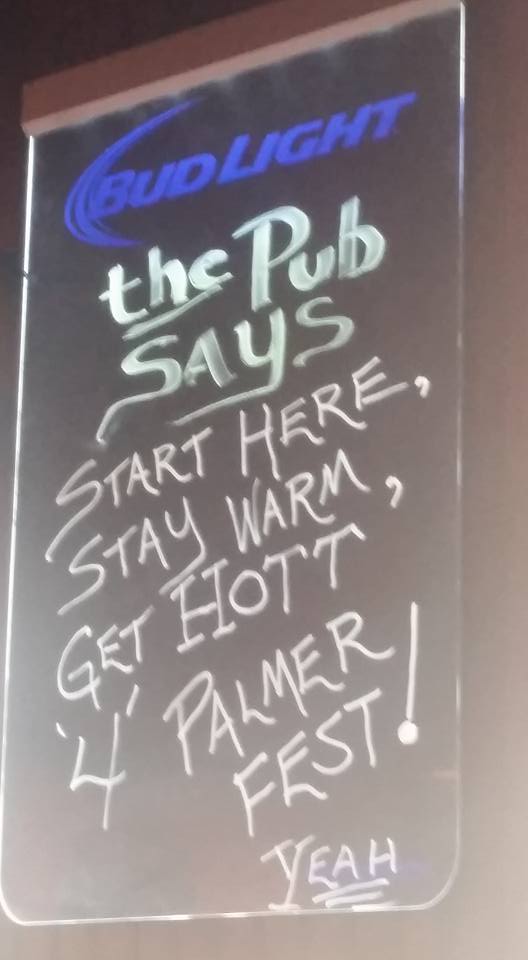 BUD LIGHT
the Pub
SAYS
START HERE,
STAY WARM,
GET HOTT
'4' PALMER
FEST!
YEAH